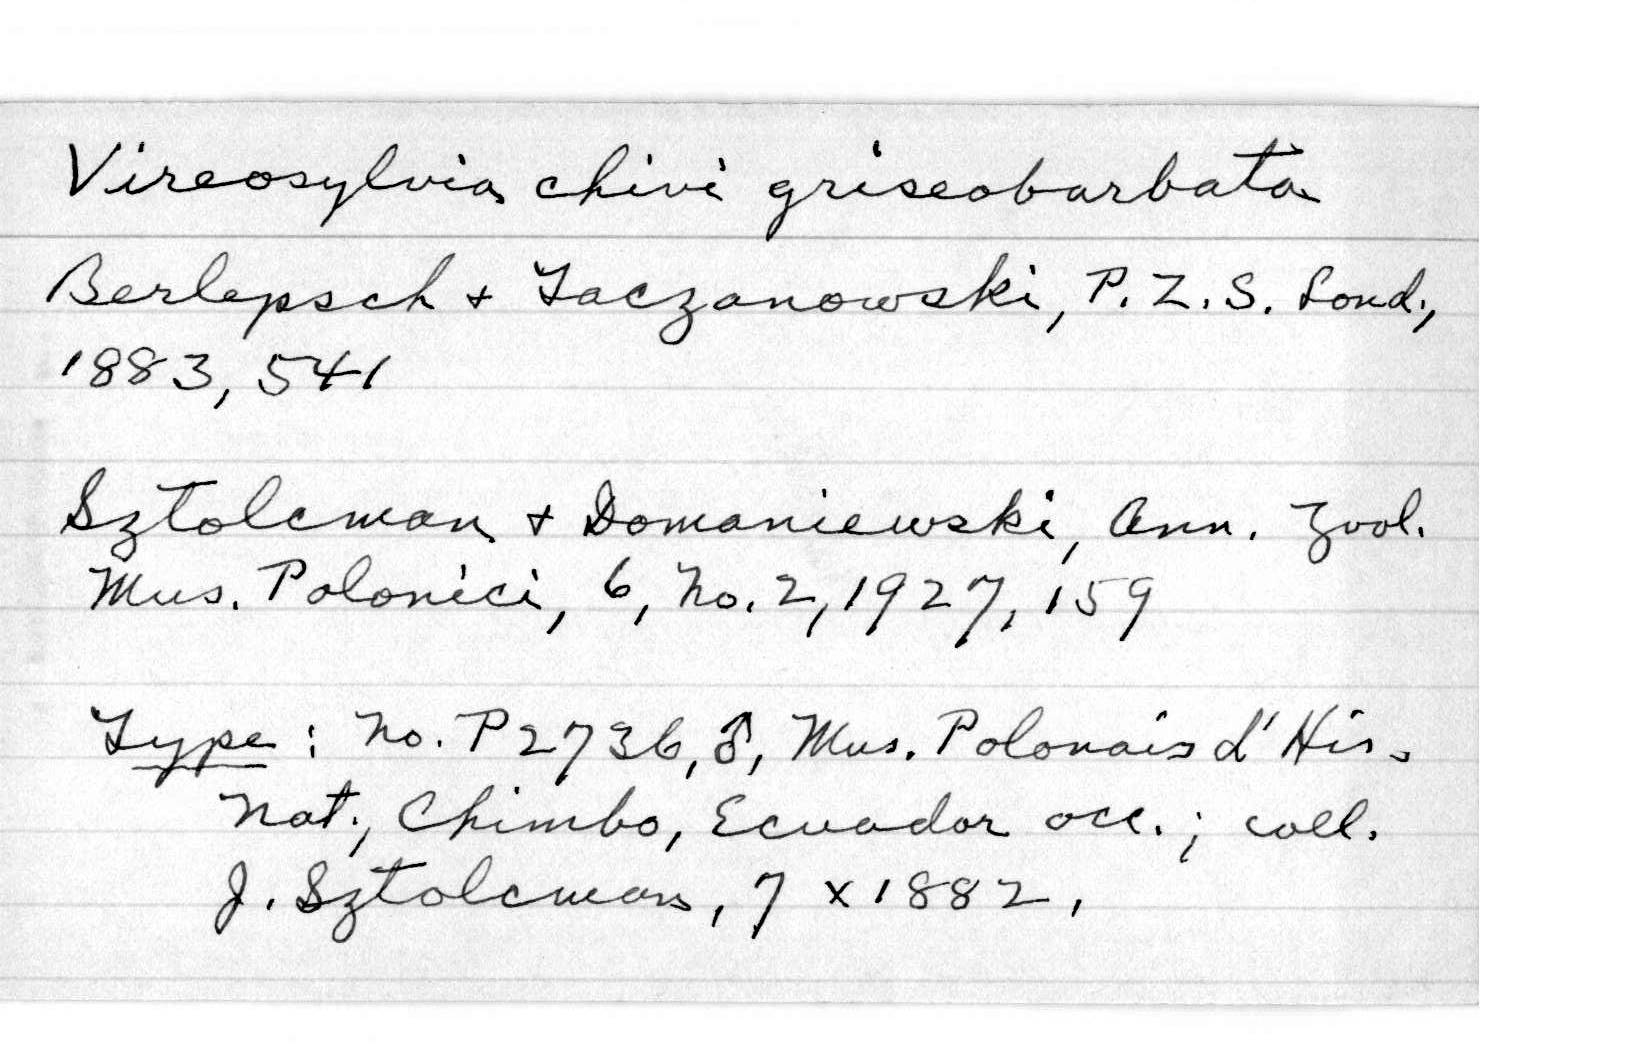 Vireosylvia chivi griseobarbata
Berlepsch + Taczanowski, P. Z. S. Lond.,
1883, 541
Sztolcman + Domaniewski, Ann. Zool.
Mus. Polonici, 6, No. 2, 1927, 159
Type: No. P2736, ♂, Mus. Polonais d'His.
Nat., Chimbo, Ecuador occ.; coll.
J. Sztolcman, 7 x 1882.